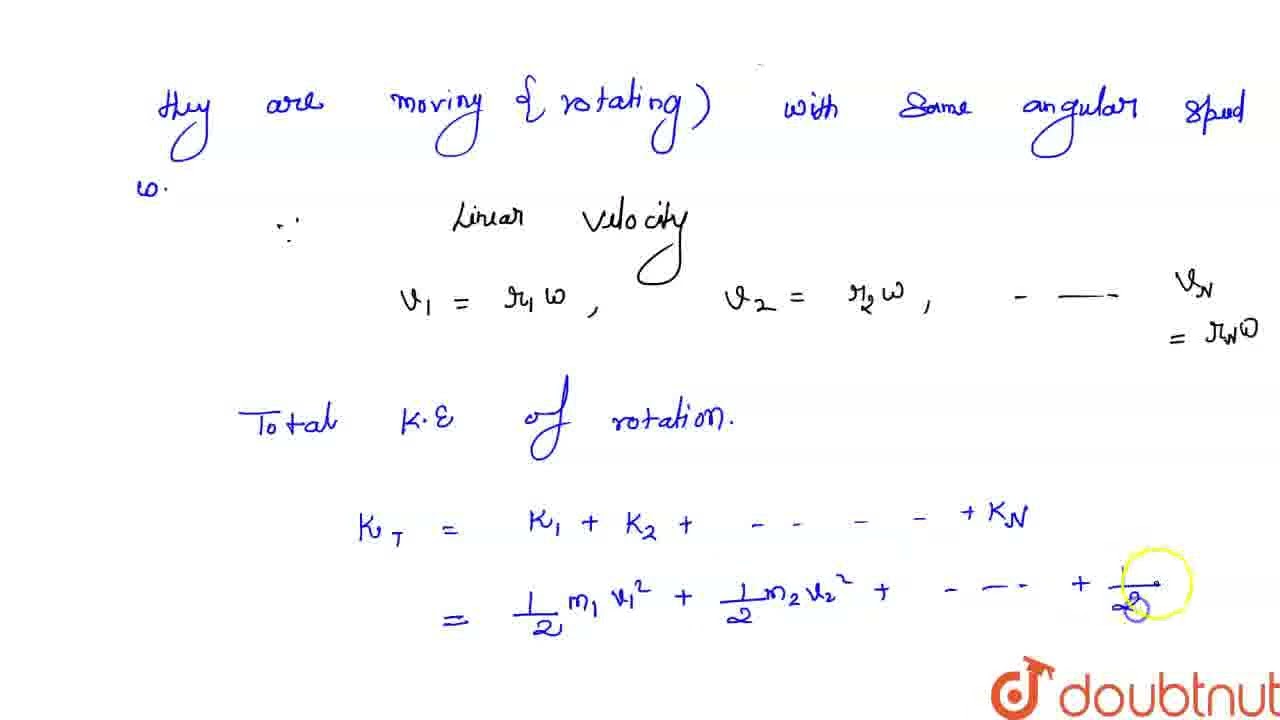 they are moving { rotating ) with same angular speed
ω.
∵ Linear velocity
v₁ = r₁ω , v₂ = r₂ω , - — - v_N
= r_Nω
Total K.E of rotation.
K_T = K₁ + K₂ + - - - - + K_N
= 1/2 m₁ v₁² + 1/2 m₂ v₂² + - — - + 1/2
doubtnut